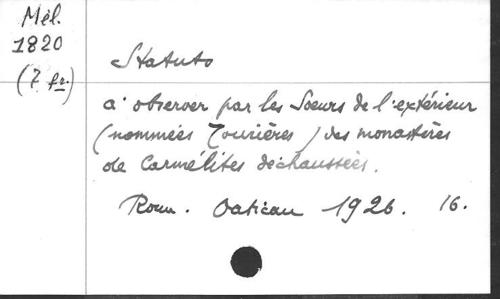 Mél.
1820
(7 fr.)
Statuts
à observer par les Soeurs de l'extérieur
(nommées Tourières) des monastères
de Carmélites déchaussées.
Rom. Vatican 1926. 16.